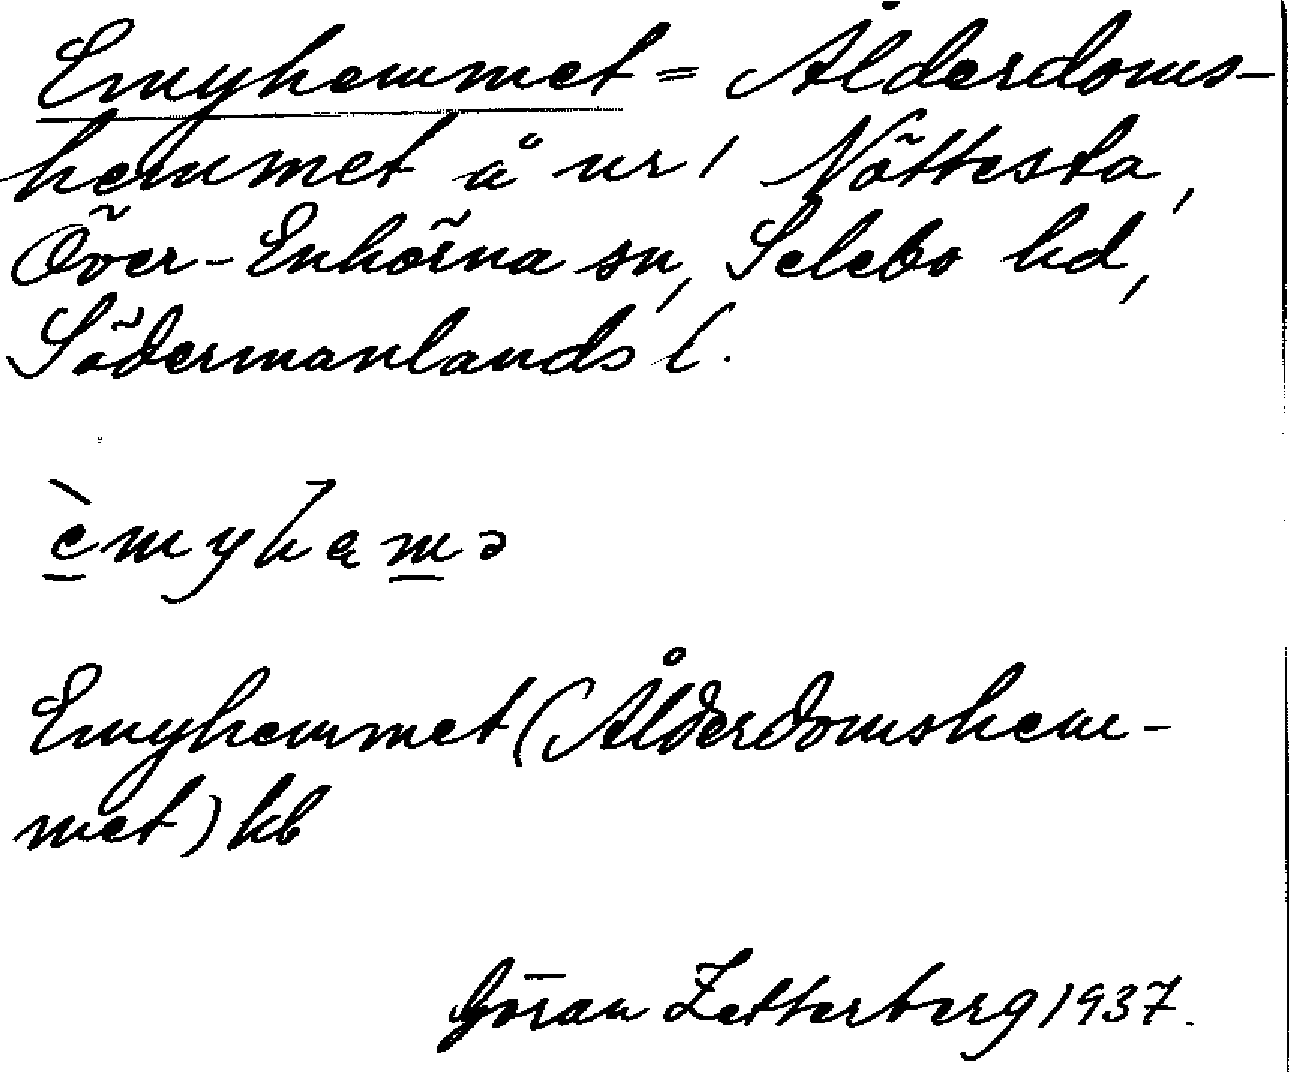 Emyhemmet = Ålderdoms-
hemmet å nr 1 Nöttesta,
Över-Enhörna sn, Selebo hd,
Södermanlands l.
èmyhemə
Emyhemmet (Ålderdomshem-
met) kb
Göran Zetterberg 1937.